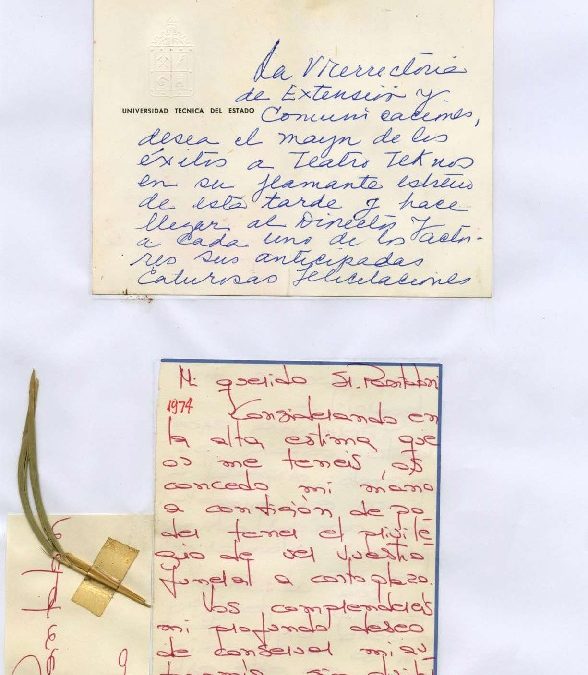 UNIVERSIDAD TECNICA DEL ESTADO
La Vicerrectoria
de Extensión y
Comunicaciones,
desea el mayor de los
éxitos a Teatro Teknos
en su flamante estreno
de esta tarde y hace
llegar al Director y
a cada uno de los Acto-
res sus anticipadas
calurosas felicitaciones
Mi querido Sr.
1974
Considerando en
la alta estima que
os me teneis, os
concedo mi mano
a condición de po
der tener el privile
gio de ver vuestro
funeral a corto plazo.
Vos comprendereis
mi profundo deseo
de conservar mi au